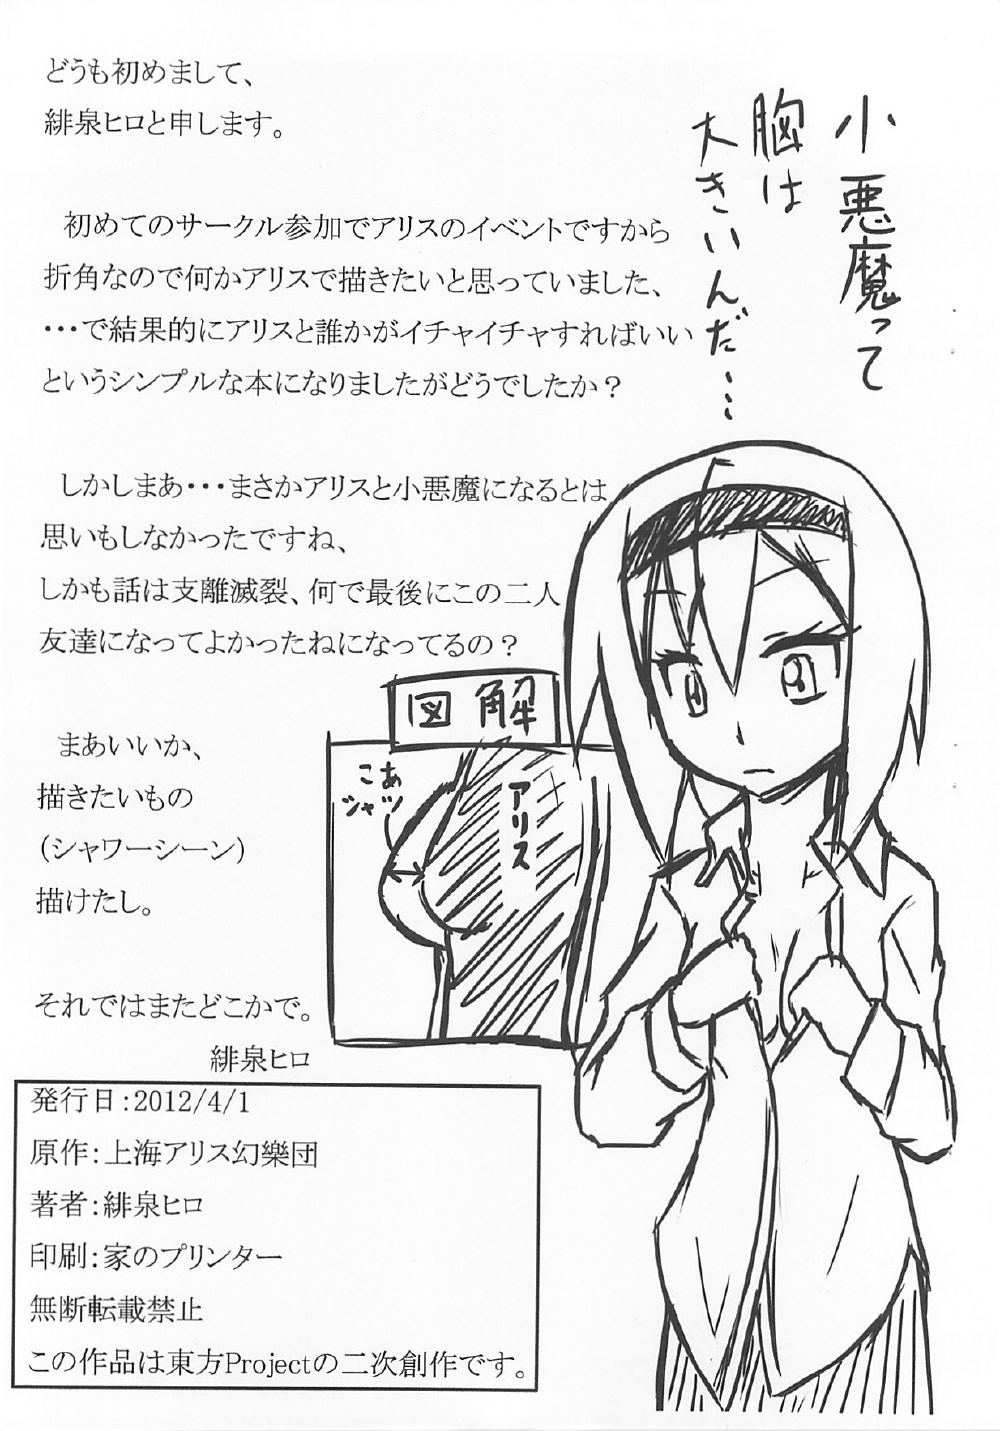 どうも初めまして、
緋泉ヒロと申します。
初めてのサークル参加でアリスのイベントですから
折角なので何かアリスで描きたいと思っていました、
・・・で結果的にアリスと誰かがイチャイチャすればいい
というシンプルな本になりましたがどうでしたか？
しかしまあ・・・まさかアリスと小悪魔になるとは
思いもしなかったですね、
しかも話は支離滅裂、何で最後にこの二人
友達になってよかったねになってるの？
まあいいか、
描きたいもの
（シャワーシーン）
描けたし。
それではまたどこかで。
緋泉ヒロ
小悪魔って
胸は
大きいんだ…
図解
アリス
こあ
シャツ
発行日：2012/4/1
原作：上海アリス幻樂団
著者：緋泉ヒロ
印刷：家のプリンター
無断転載禁止
この作品は東方Projectの二次創作です。